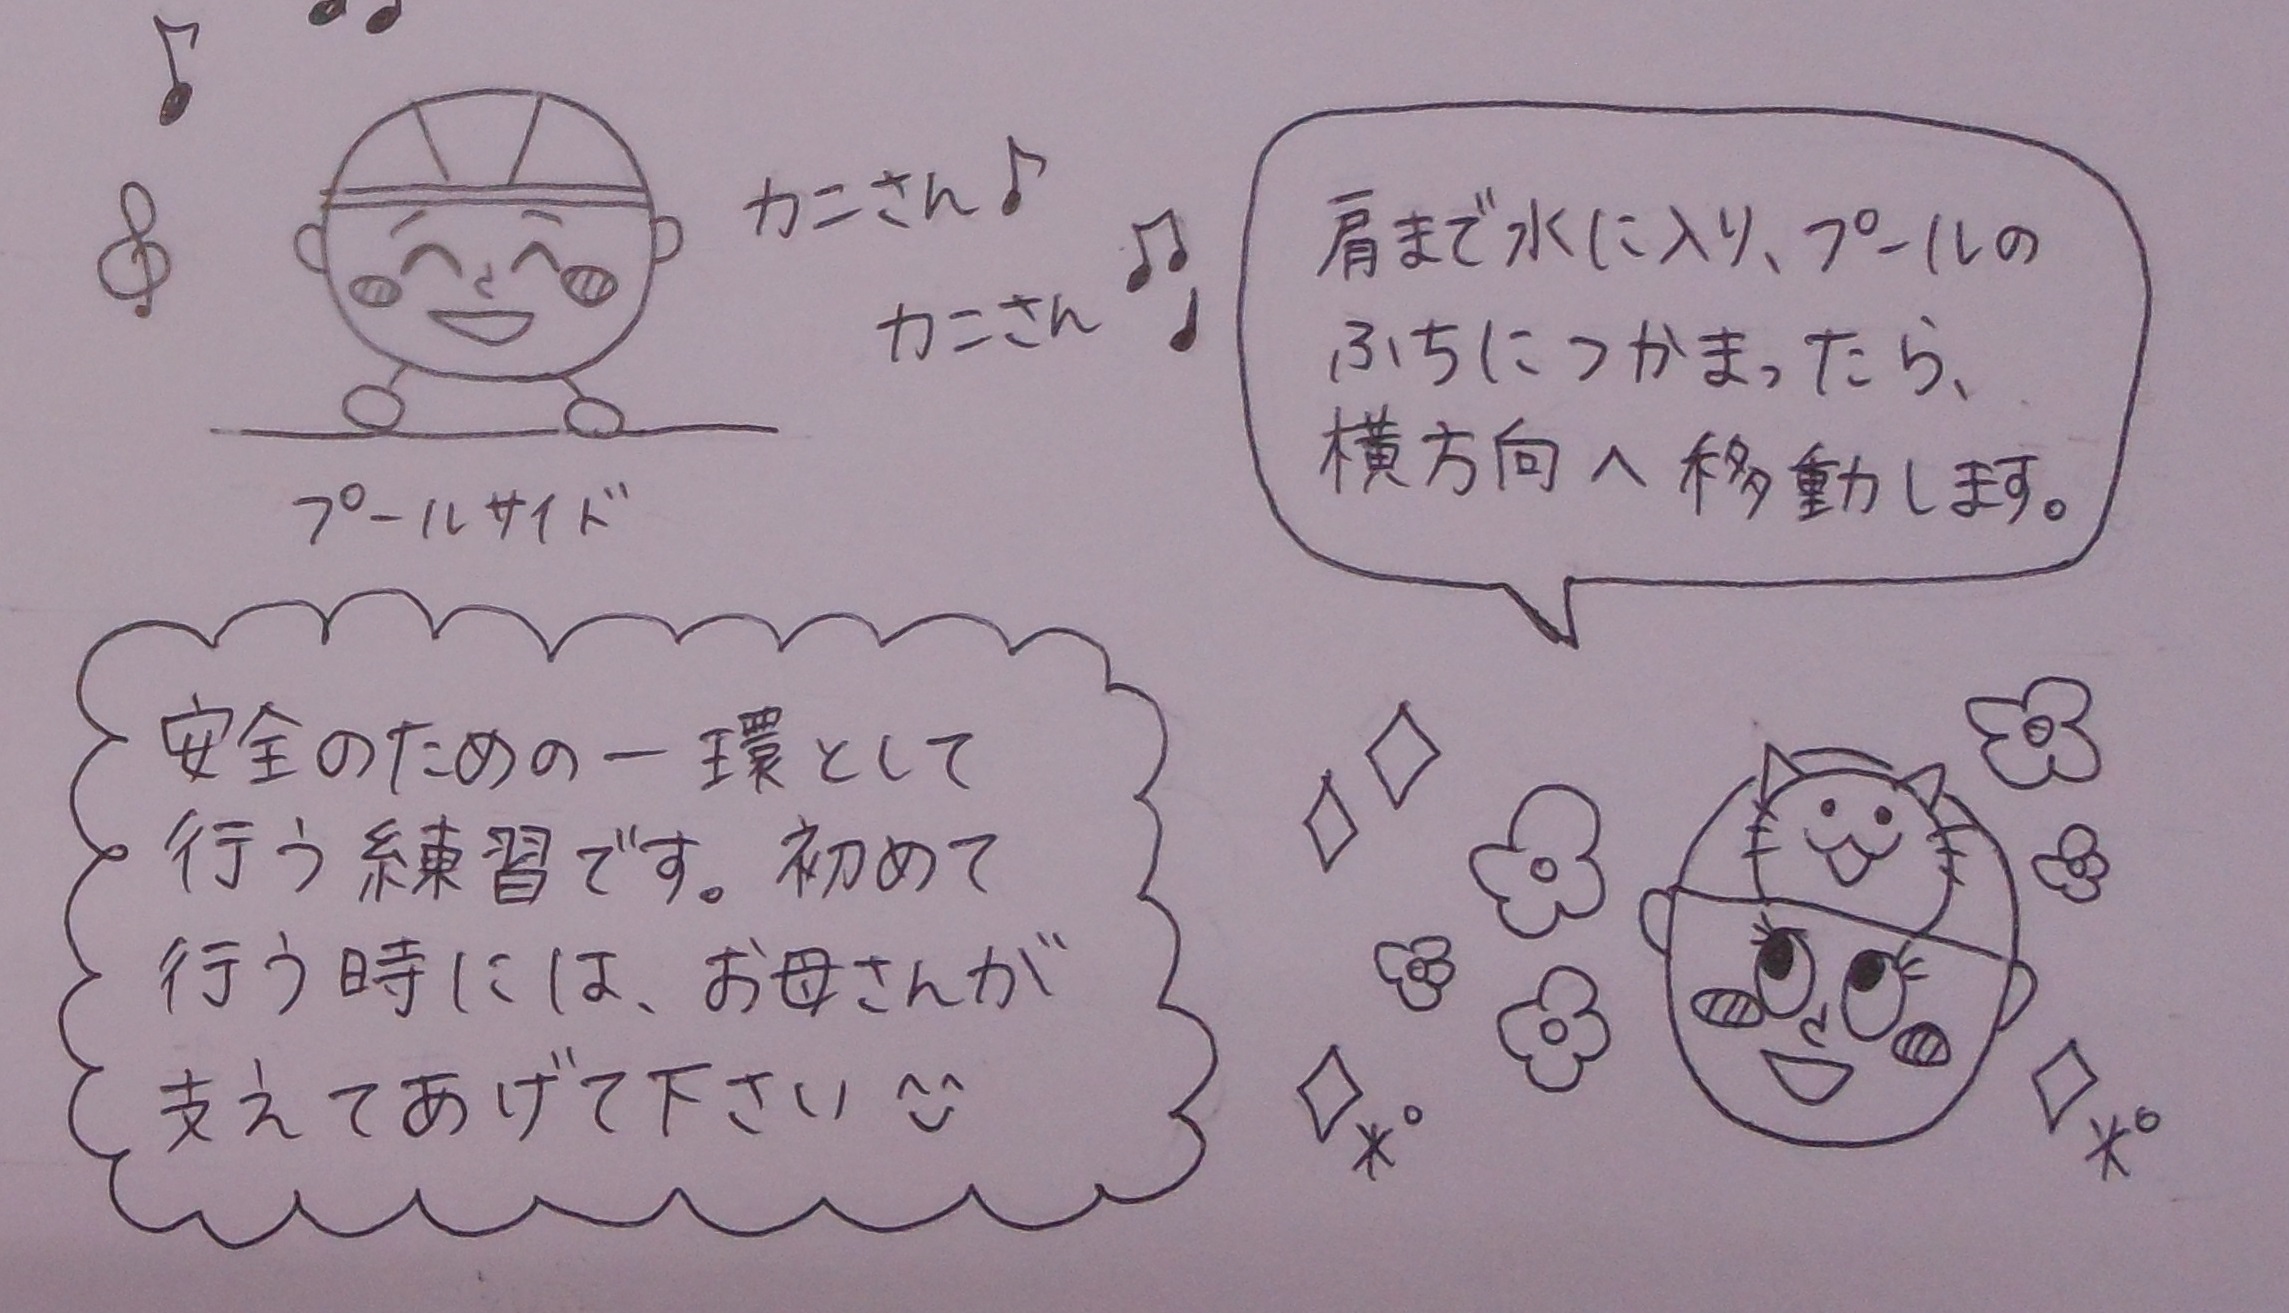 カニさん♪
カニさん
プールサイド
肩まで水に入り、プールの
ふちにつかまったら、
横方向へ移動します。
安全のための一環として
行う練習です。初めて
行う時には、お母さんが
支えてあげて下さい